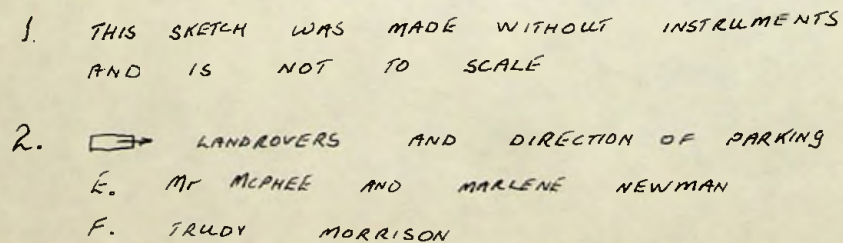 1. THIS SKETCH WAS MADE WITHOUT INSTRUMENTS
AND IS NOT TO SCALE
2. LANDROVERS AND DIRECTION OF PARKING
E. Mr MCPHEE AND MARLENE NEWMAN
F. TRUDY MORRISON